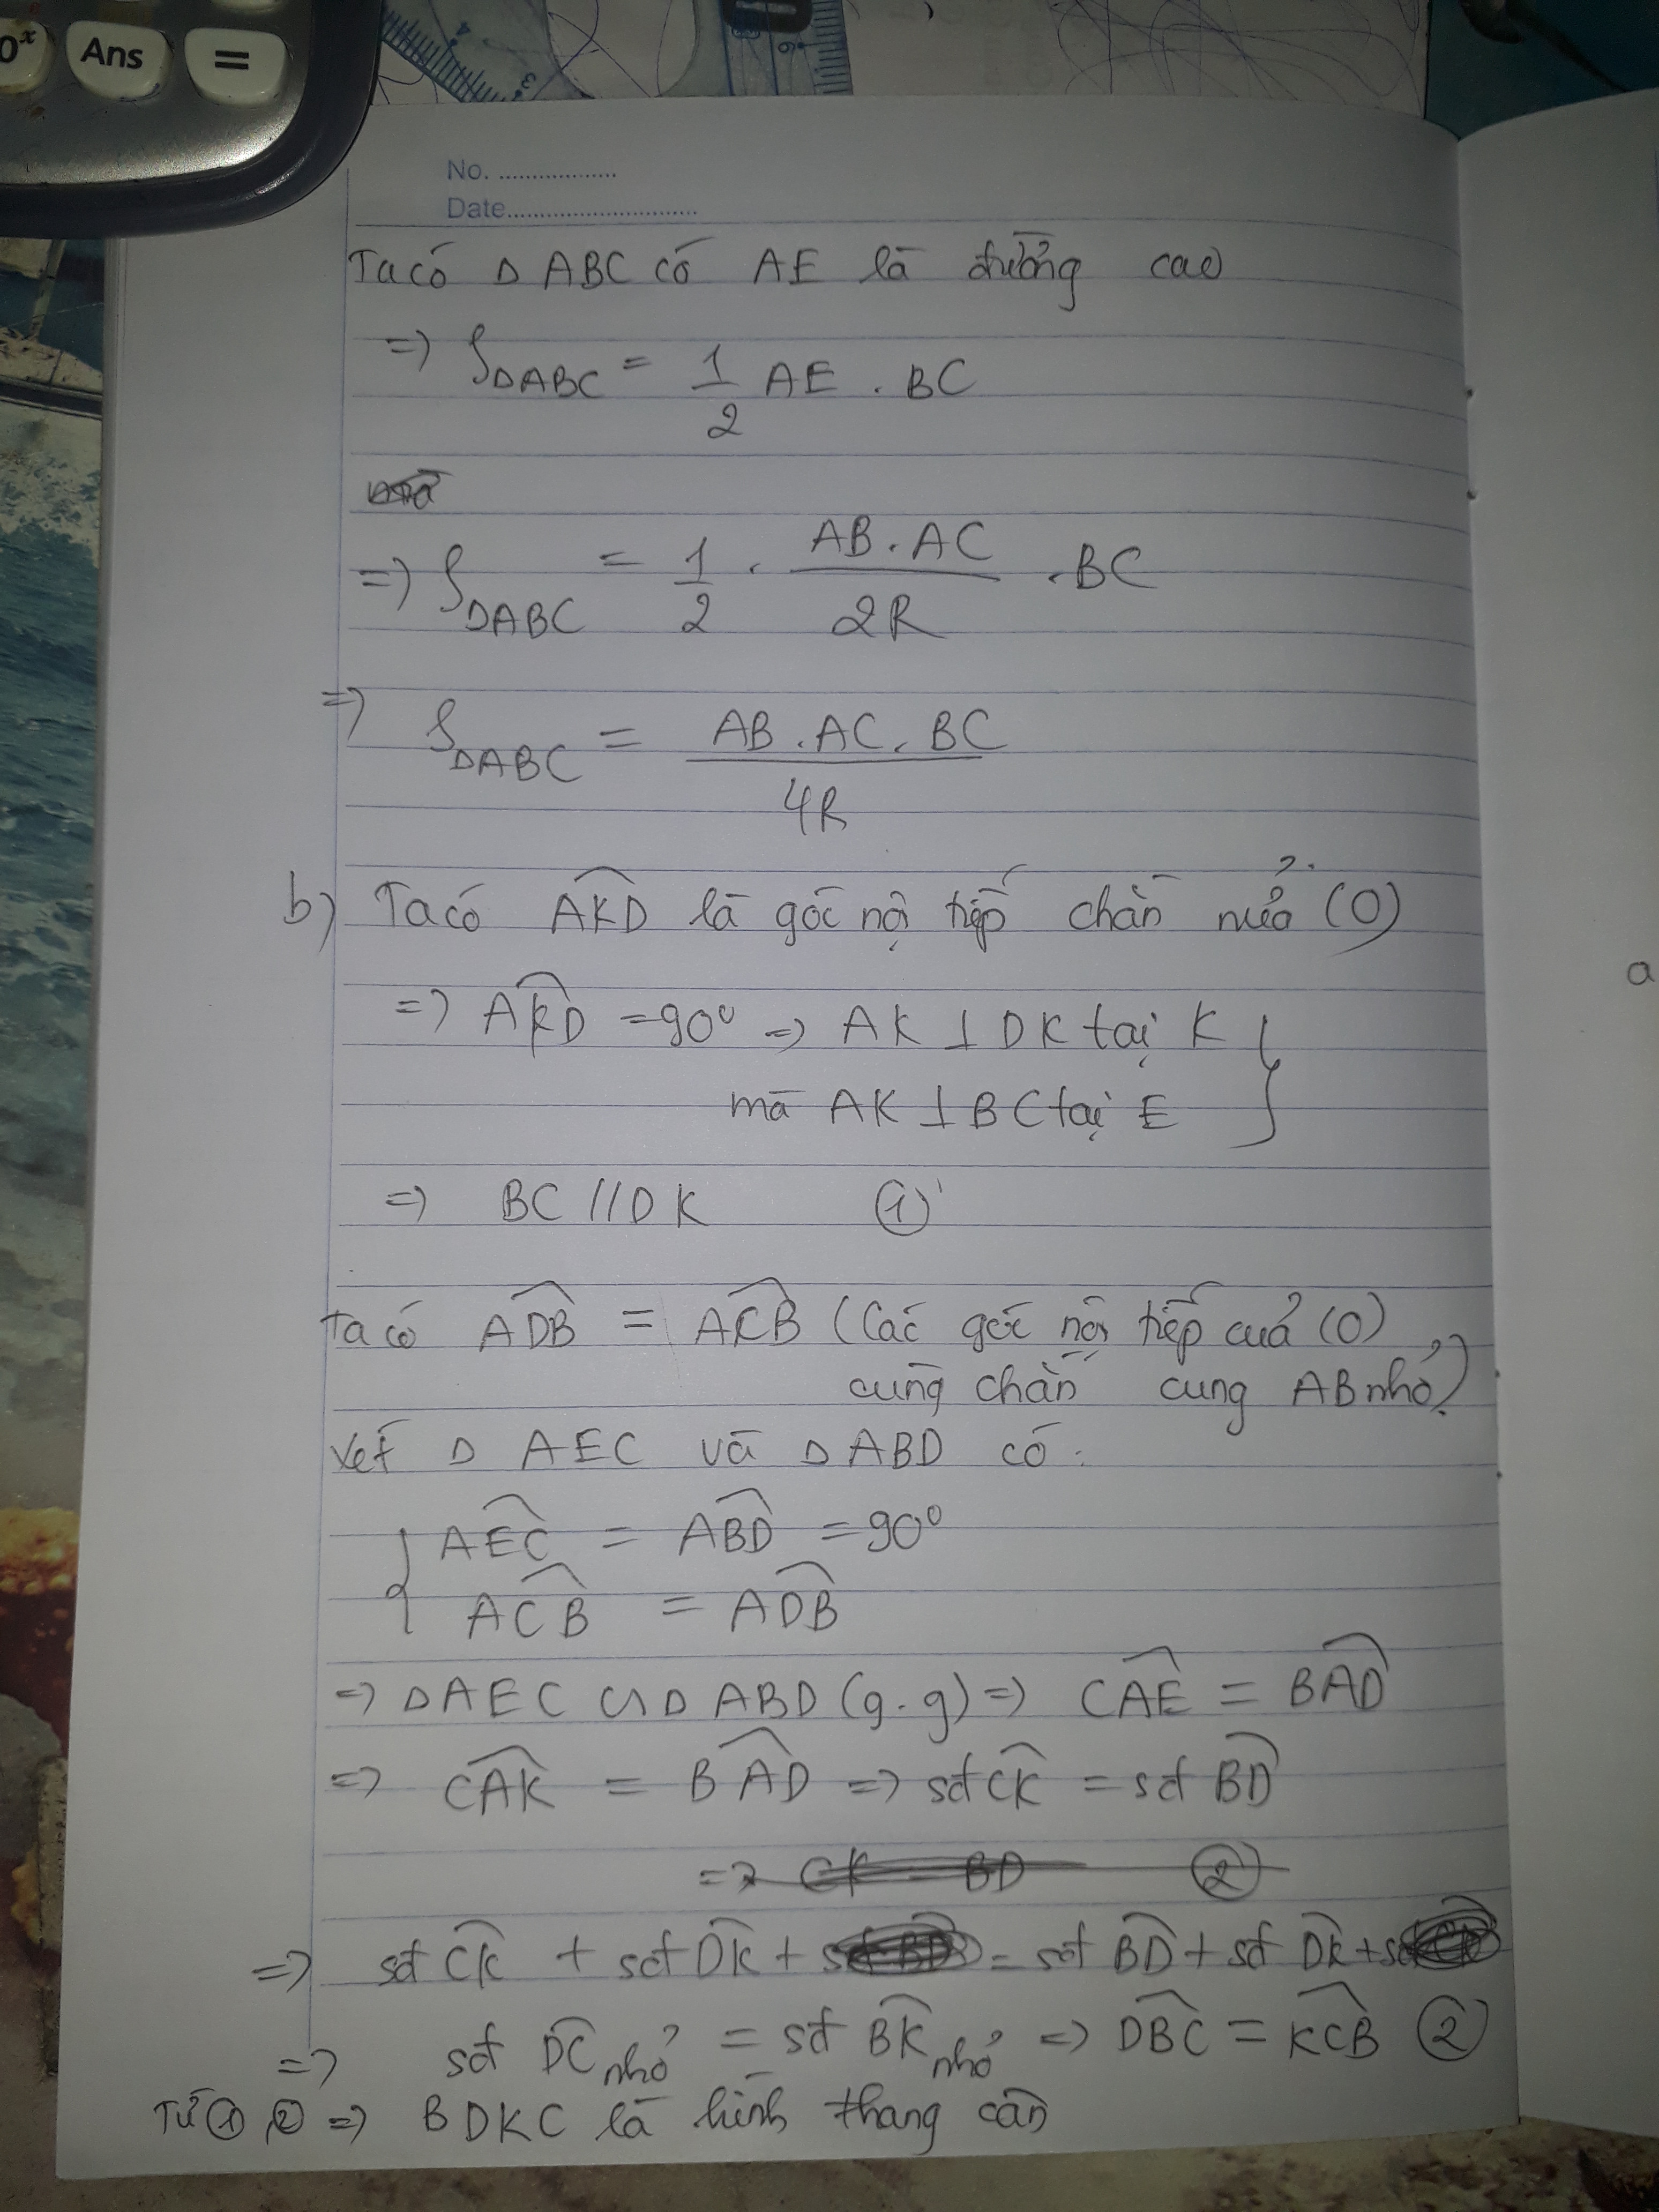 10ˣ Ans =
No. ..................
Date..............................
Ta có Δ ABC có AE là đường cao
=> SΔABC = 1/2 AE . BC
=> SΔABC = 1/2 . AB.AC/2R .BC
=> SΔABC = AB.AC.BC/4R
b) Ta có AKD̂ là góc nội tiếp chắn nửa (O)
=> AKD̂ =90° => AK ⊥ DK tại K
mà AK ⊥ BC tại E
=> BC // DK ①
Ta có ADB̂ = ACB̂ (Các góc nội tiếp của (O)
cùng chắn cung AB nhỏ)
Xét Δ AEC và Δ ABD có:
AEĈ = ABD̂ =90°
ACB̂ = ADB̂
=> ΔAEC ∽ Δ ABD (g.g) => CAÊ = BAD̂
=> CAK̂ = BAD̂ => sđ CK̂ = sđ BD̂
=> CK = BD ②
=> sđ CK̂ + sđ DK̂ + sđ BD̂ = sđ BD̂ + sđ DK̂ + sđ
=> sđ DĈ nhỏ = sđ BK̂ nhỏ => DBĈ = KCB̂ ②
Từ ①, ② => BDKC là hình thang cân
a